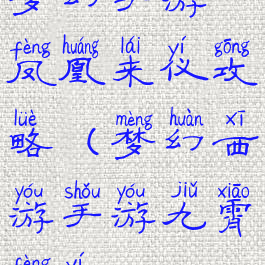 梦幻手游
fèng huáng lái yí gōng
凤凰来仪攻
lüè mèng huàn xī
略（梦幻西
yóu shǒu yóu jiǔ xiāo
游手游九霄
fèng yí